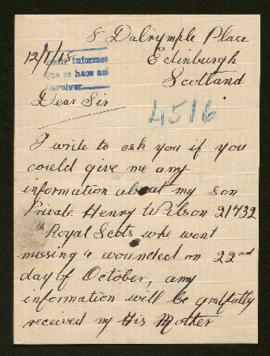 8 Dalrymple Place
Edinburgh
12/1/15
Scotland
Dear Sir
4516
I write to ask you if you
could give me any
information about my son
Private Henry Wilson 21732
Royal Scots who went
missing & wounded on 22nd
day of October, any
information will be gratfully
received my His Mother